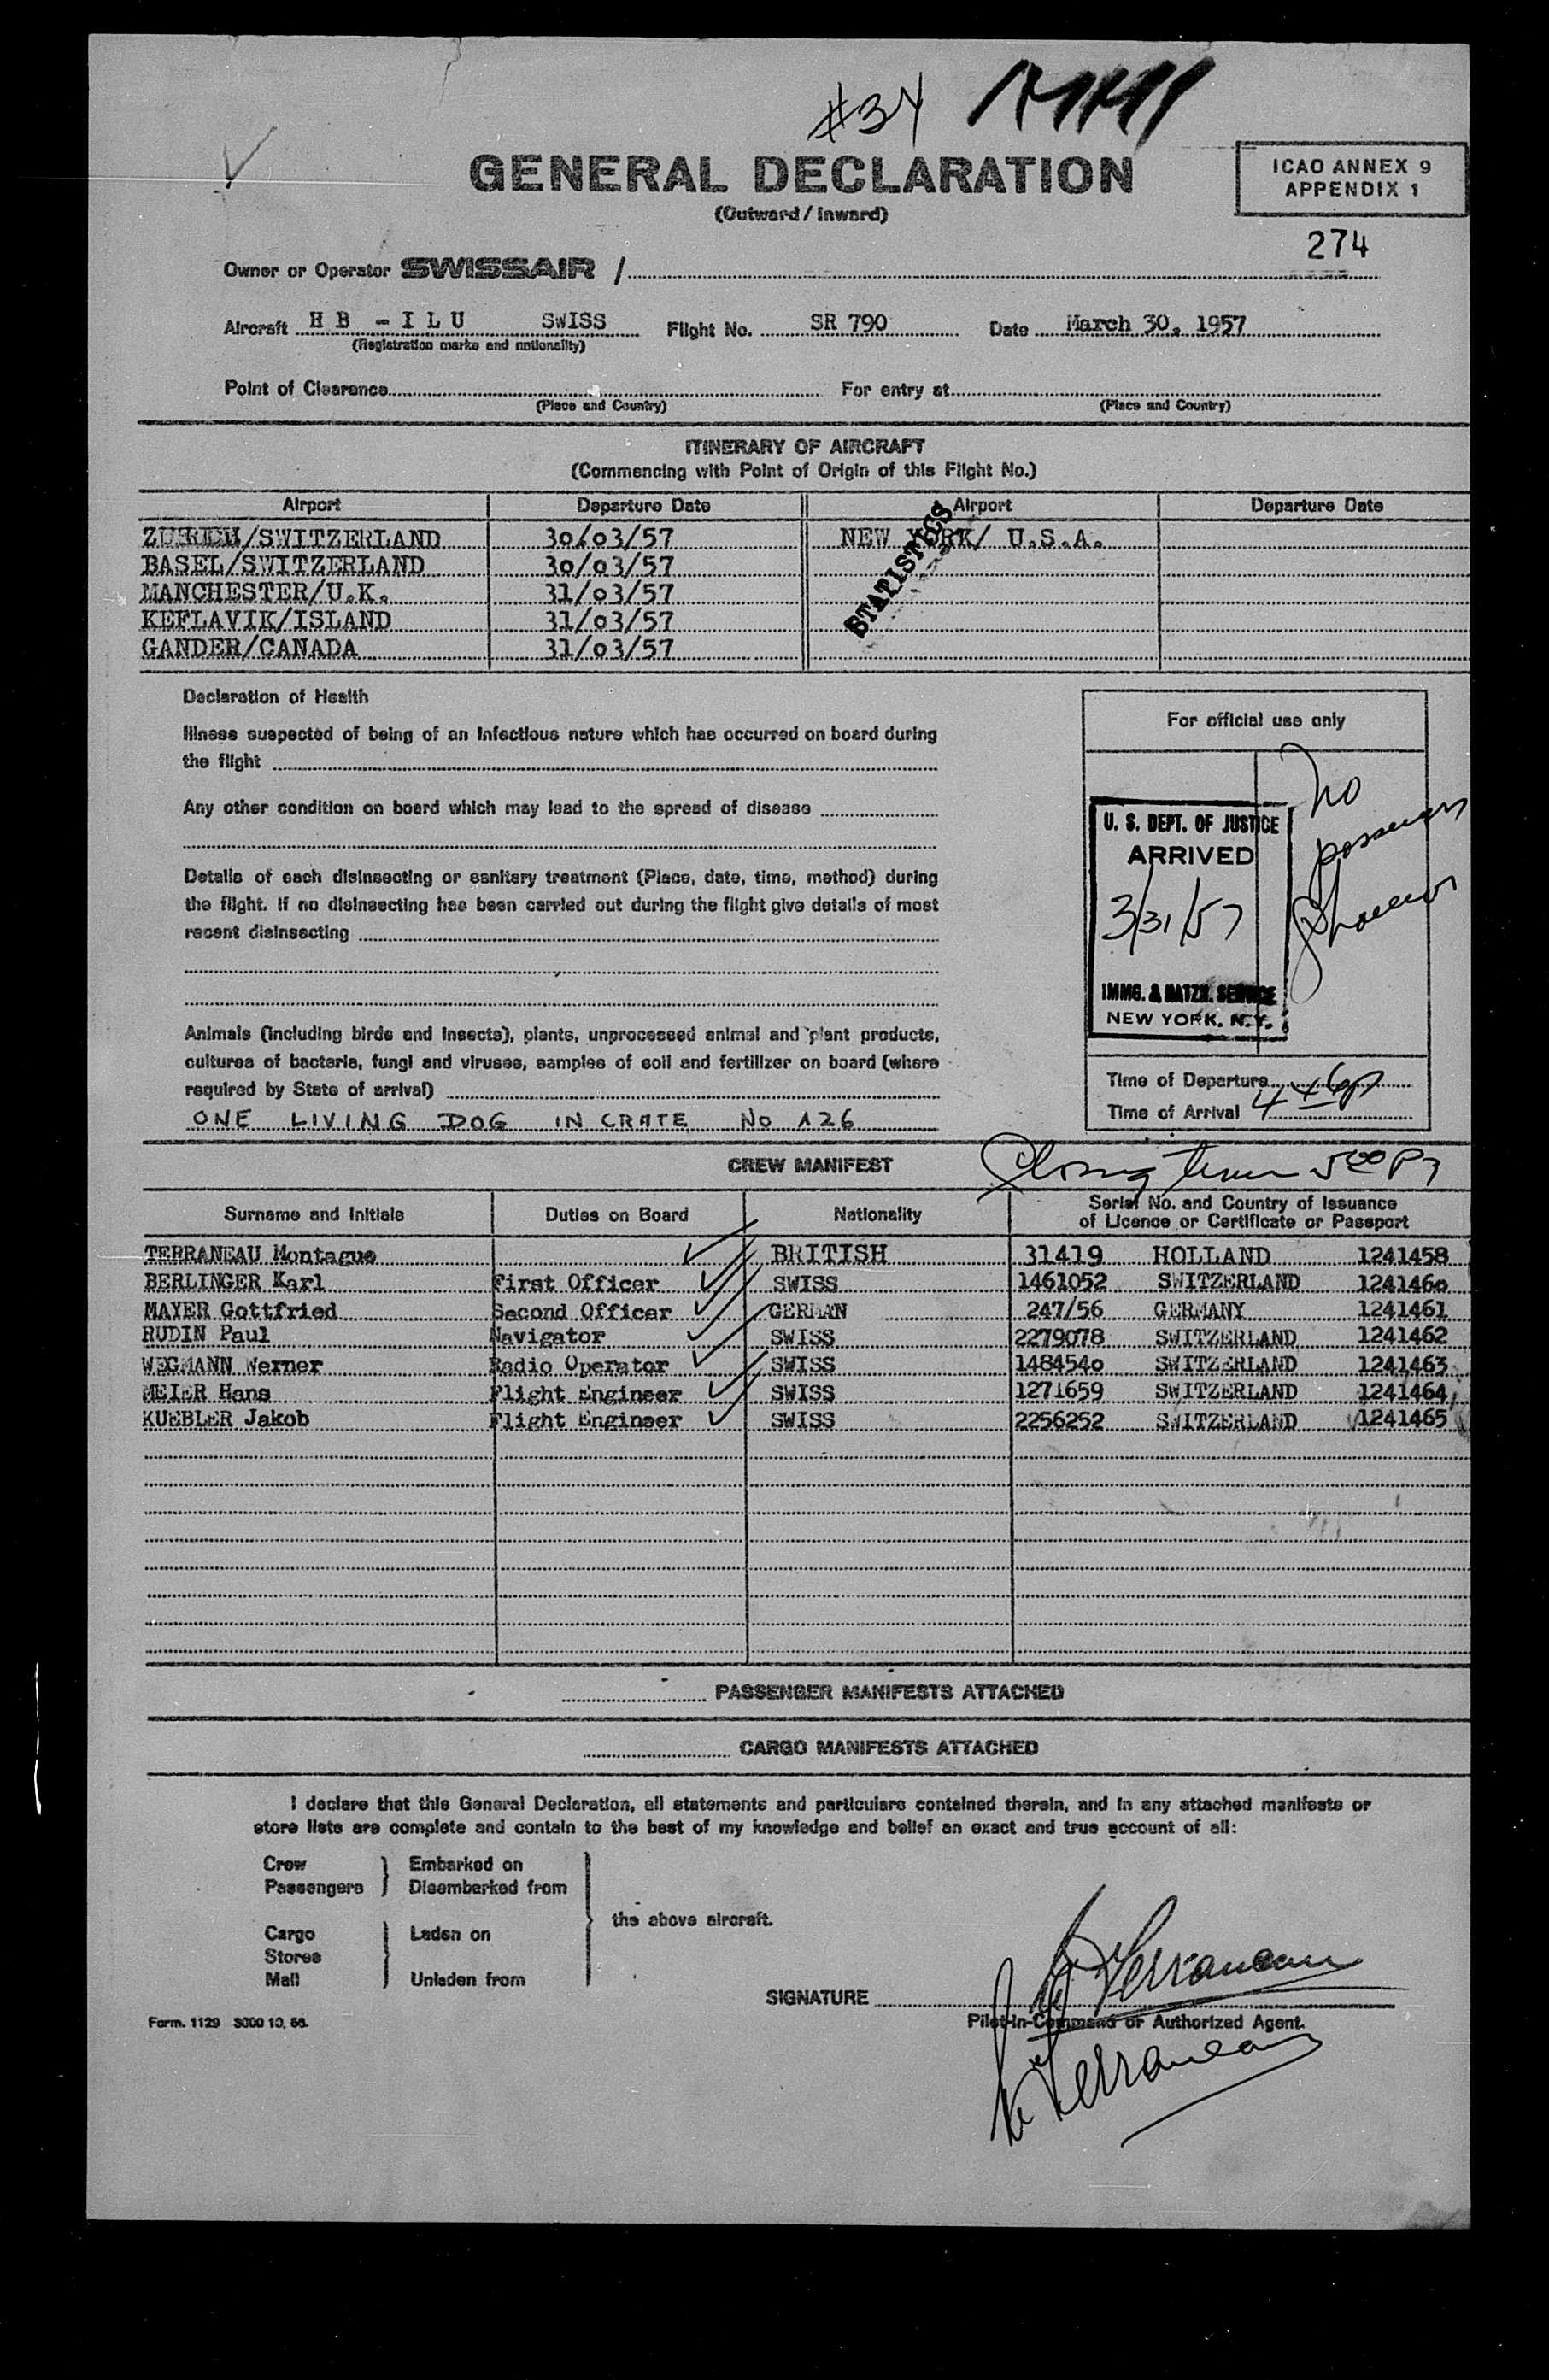 #34
GENERAL DECLARATION
(Outward / Inward)
ICAO ANNEX 9
APPENDIX 1
274
Owner or Operator SWISSAIR /
Aircraft H B - I L U SWISS Flight No. SR 790 Date March 30, 1957
(Registration marks and nationality)
Point of Clearance For entry at
(Place and Country) (Place and Country)
ITINERARY OF AIRCRAFT
(Commencing with Point of Origin of this Flight No.)
Airport Departure Date Airport Departure Date
STATISTICS
ZUERICH/SWITZERLAND 30/03/57 NEW YORK/ U.S.A.
BASEL/SWITZERLAND 30/03/57
MANCHESTER/U.K. 31/03/57
KEFLAVIK/ISLAND 31/03/57
GANDER/CANADA 31/03/57
Declaration of Health
Illness suspected of being of an infectious nature which has occurred on board during
the flight
Any other condition on board which may lead to the spread of disease
Details of each disinsecting or sanitary treatment (Place, date, time, method) during
the flight. If no disinsecting has been carried out during the flight give details of most
recent disinsecting
Animals (including birds and insects), plants, unprocessed animal and plant products,
cultures of bacteria, fungi and viruses, samples of soil and fertilizer on board (where
required by State of arrival)
ONE LIVING DOG IN CRATE No 126
For official use only
No
U. S. DEPT. OF JUSTICE
ARRIVED
3/31/57
IMMG. & NATZN. SERVICE
NEW YORK, N.Y.
Time of Departure
Time of Arrival
CREW MANIFEST
Closing time 5 00 P
Surname and Initials Duties on Board Nationality Serial No. and Country of Issuance
of Licence or Certificate or Passport
TERRANEAU Montague BRITISH 31419 HOLLAND 1241458
BERLINGER Karl First Officer SWISS 1461052 SWITZERLAND 1241460
MAYER Gottfried Second Officer GERMAN 247/56 GERMANY 1241461
RUDIN Paul Navigator SWISS 2279078 SWITZERLAND 1241462
WEGMANN Werner Radio Operator SWISS 1484540 SWITZERLAND 1241463
MEIER Hans Flight Engineer SWISS 1271659 SWITZERLAND 1241464
KUEBLER Jakob Flight Engineer SWISS 2256252 SWITZERLAND 1241465
PASSENGER MANIFESTS ATTACHED
CARGO MANIFESTS ATTACHED
I declare that this General Declaration, all statements and particulars contained therein, and in any attached manifests or
store lists are complete and contain to the best of my knowledge and belief an exact and true account of all:
Crew Embarked on
Passengers Disembarked from
the above aircraft.
Cargo Laden on
Stores
Mail Unladen from
SIGNATURE Terraneau
Pilot-in-Command or Authorized Agent.
Terraneau
Form. 1129 3000 10. 56.